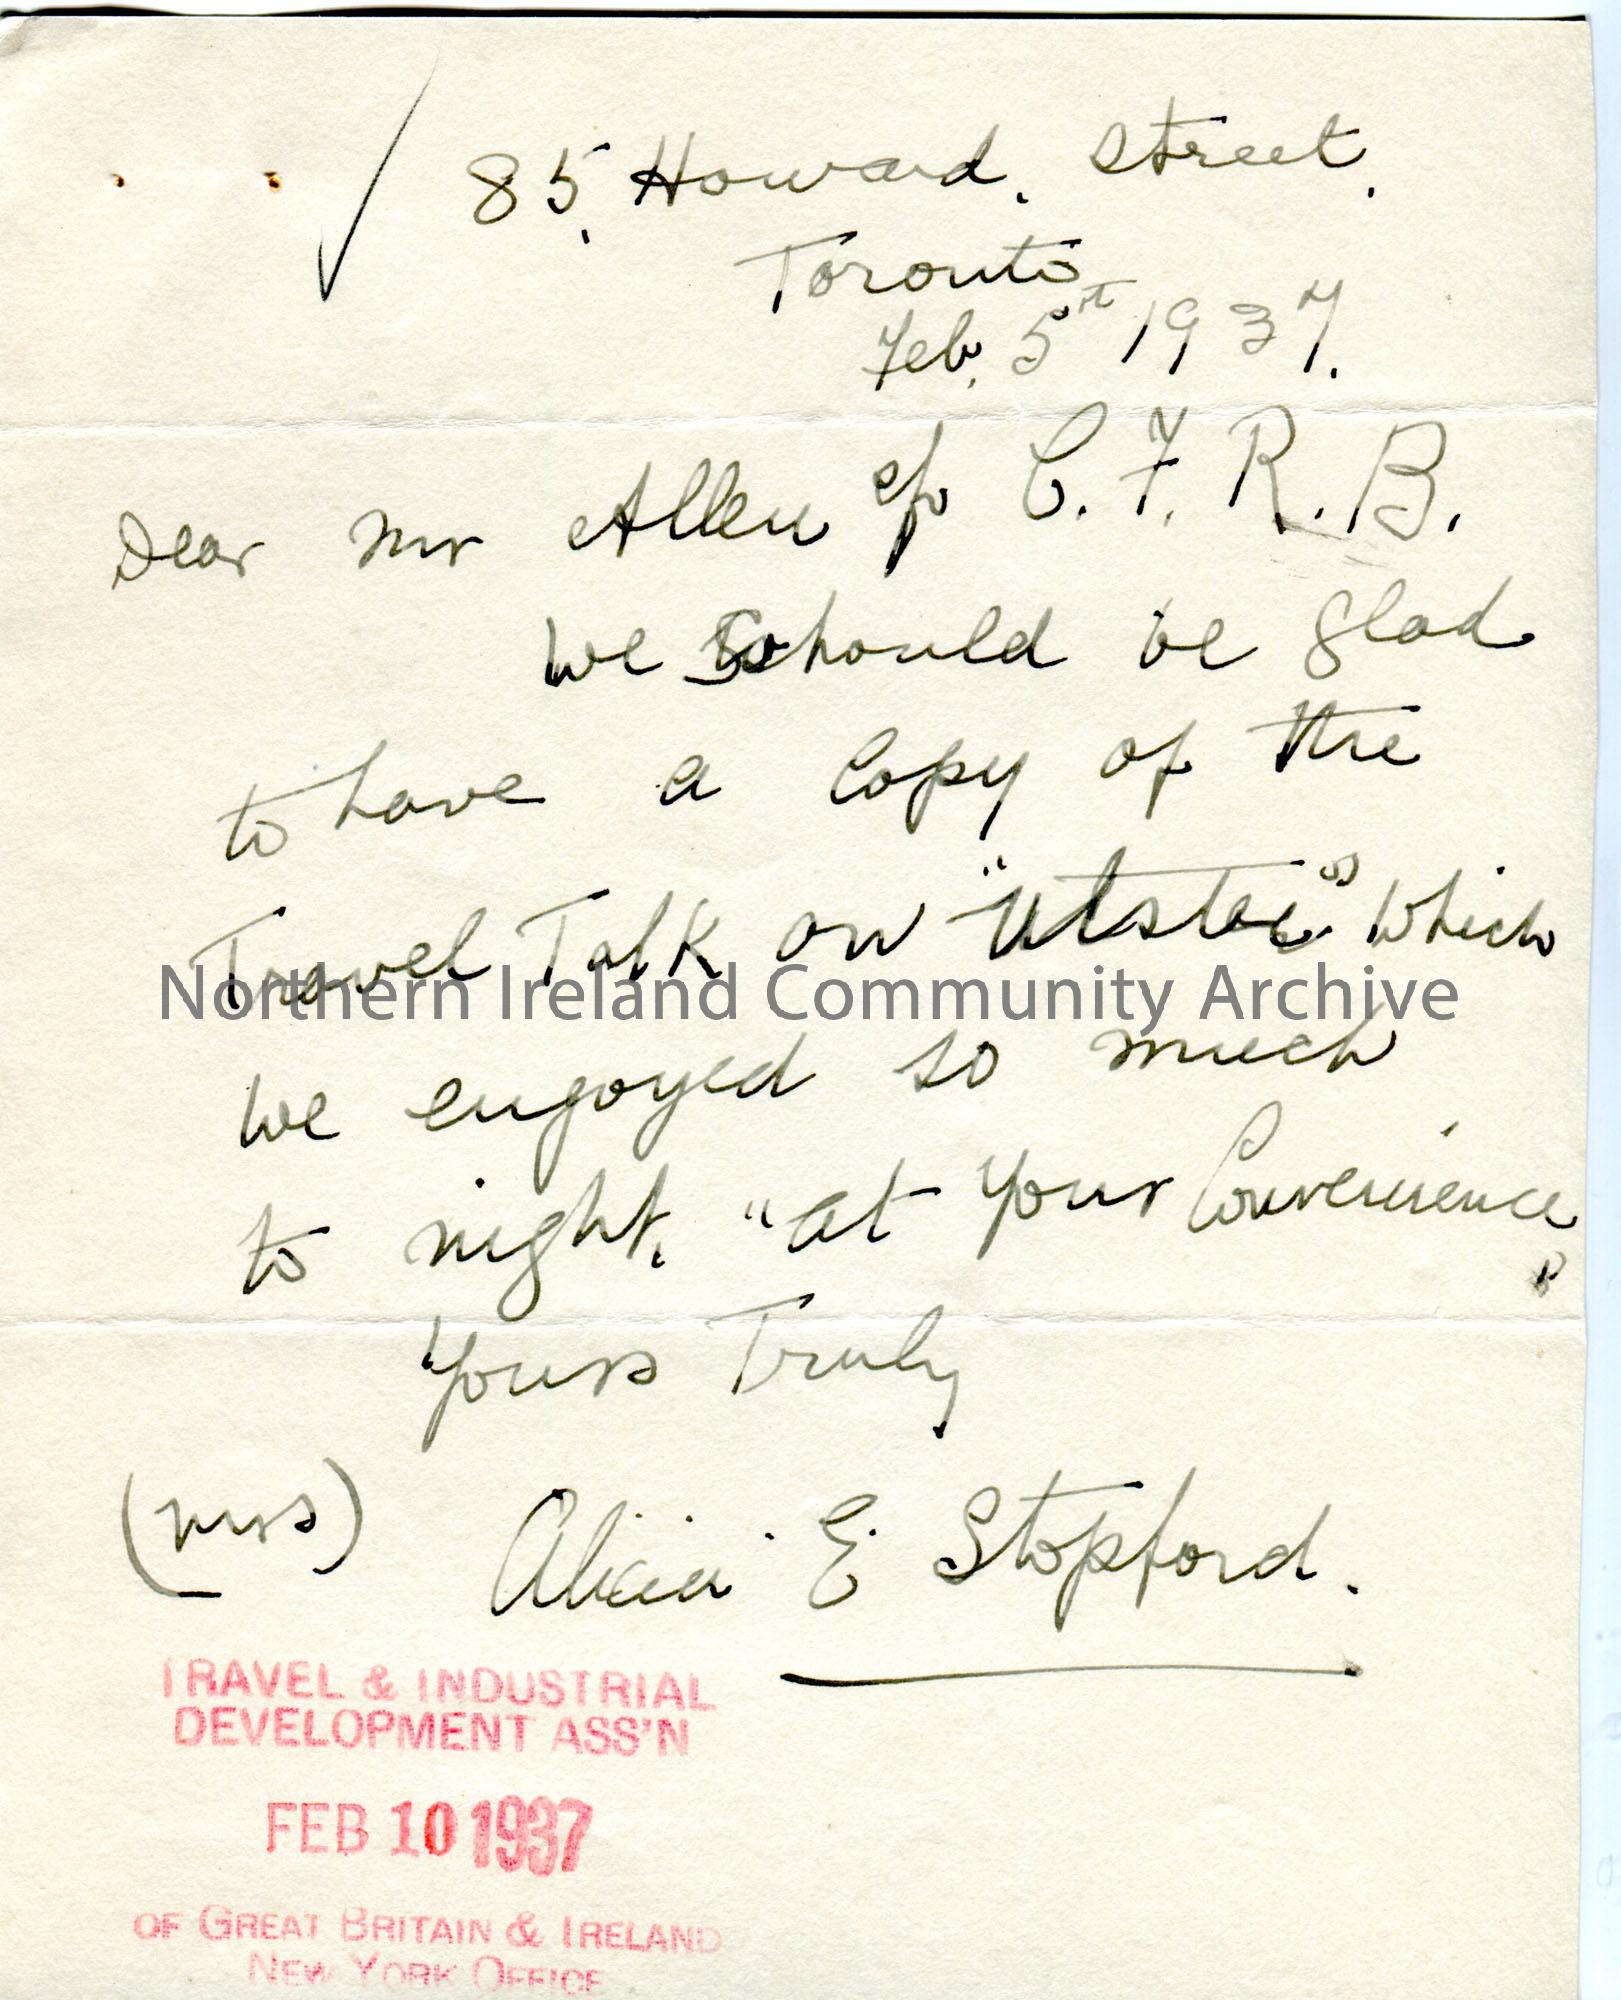 85, Howard. Street.
Toronto
Feb. 5th 1937.
Dear Mr Allen c/o C.F.R.B.
We should be glad
to have a Copy of the
Travel Talk on "Ulster" which
Northern Ireland Community Archive
we engoyed so much
to night. "at your Convenience"
Yours Truly
(mrs) Alicia E Stopford.
TRAVEL & INDUSTRIAL
DEVELOPMENT ASS'N
FEB 10 1937
OF GREAT BRITAIN & IRELAND
NEW YORK OFFICE